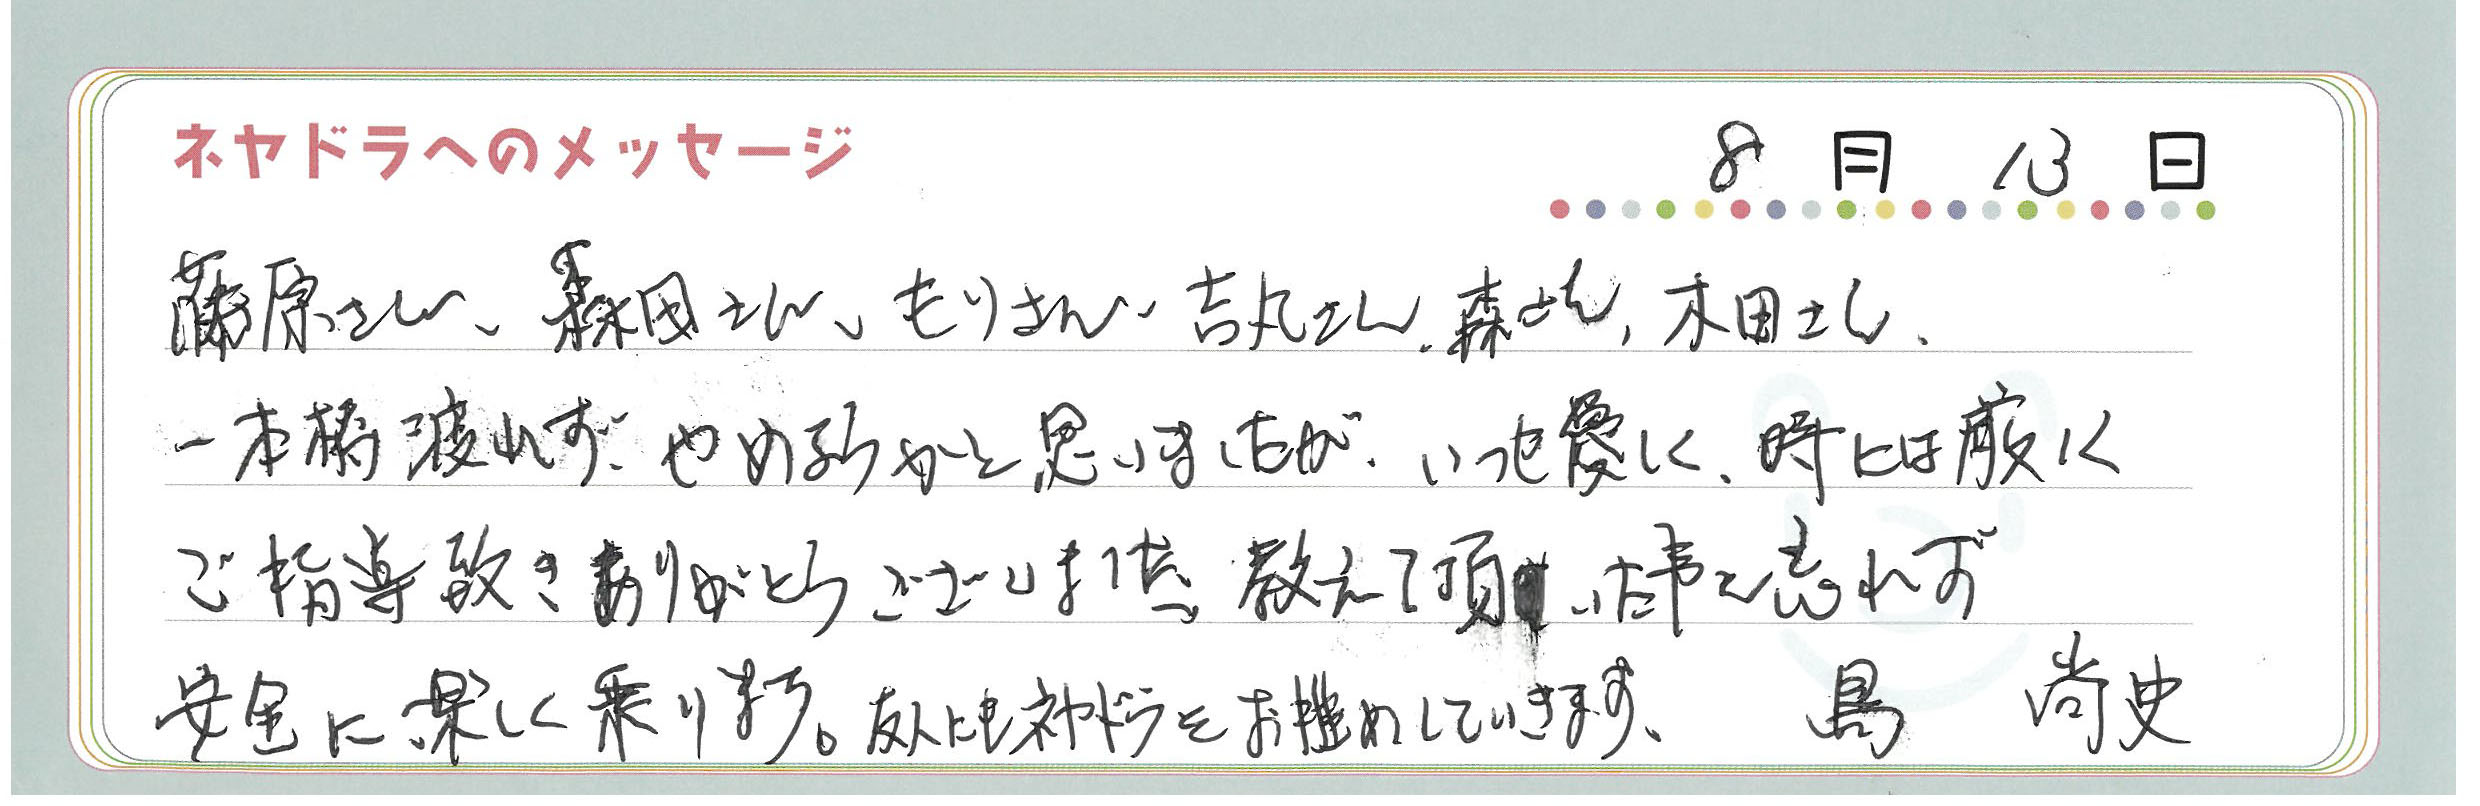 ネヤドラへのメッセージ
8月13日
藤原さん、森田さん、もりさん、吉丸さん、森さん、木田さん、
一本橋渡れず、やめようかと思いましたが、いつも優しく、時には厳しく
ご指導頂きありがとうございました、教えて頂いた事を忘れず
安全に楽しく乗ります。友人にもネヤドラをお勧めしていきます、 島 尚史